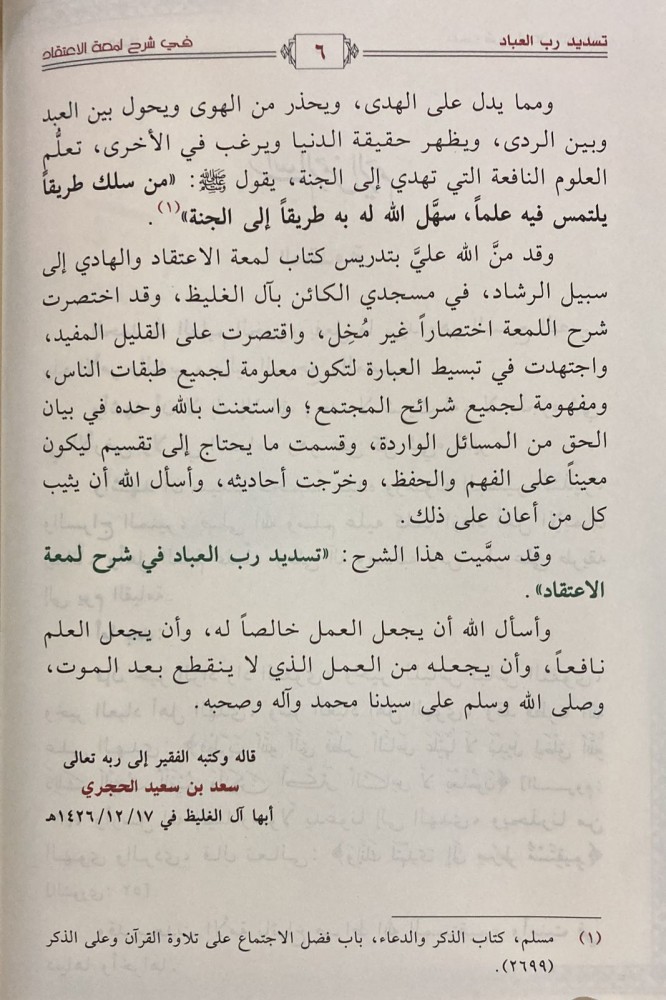 تسديد رب العباد
٦
في شرح لمعة الاعتقاد
ومما يدل على الهدى، ويحذر من الهوى ويحول بين العبد
وبين الردى، ويظهر حقيقة الدنيا ويرغب في الأخرى، تعلُّم
العلوم النافعة التي تهدي إلى الجنة، يقول ﷺ: «من سلك طريقاً
يلتمس فيه علماً، سهَّل الله له به طريقاً إلى الجنة»(١).
وقد منَّ الله عليَّ بتدريس كتاب لمعة الاعتقاد والهادي إلى
سبيل الرشاد، في مسجدي الكائن بآل الغليظ، وقد اختصرت
شرح اللمعة اختصاراً غير مُخل، واقتصرت على القليل المفيد،
واجتهدت في تبسيط العبارة لتكون معلومة لجميع طبقات الناس،
ومفهومة لجميع شرائح المجتمع؛ واستعنت بالله وحده في بيان
الحق من المسائل الواردة، وقسمت ما يحتاج إلى تقسيم ليكون
معيناً على الفهم والحفظ، وخرّجت أحاديثه، وأسأل الله أن يثيب
كل من أعان على ذلك.
وقد سمَّيت هذا الشرح: «تسديد رب العباد في شرح لمعة
الاعتقاد».
وأسأل الله أن يجعل العمل خالصاً له، وأن يجعل العلم
نافعاً، وأن يجعله من العمل الذي لا ينقطع بعد الموت،
وصلى الله وسلم على سيدنا محمد وآله وصحبه.
قاله وكتبه الفقير إلى ربه تعالى
سعد بن سعيد الحجري
أبها آل الغليظ في ١٤٢٦/١٢/١٧هـ
(١) مسلم، كتاب الذكر والدعاء، باب فضل الاجتماع على تلاوة القرآن وعلى الذكر
(٢٦٩٩).